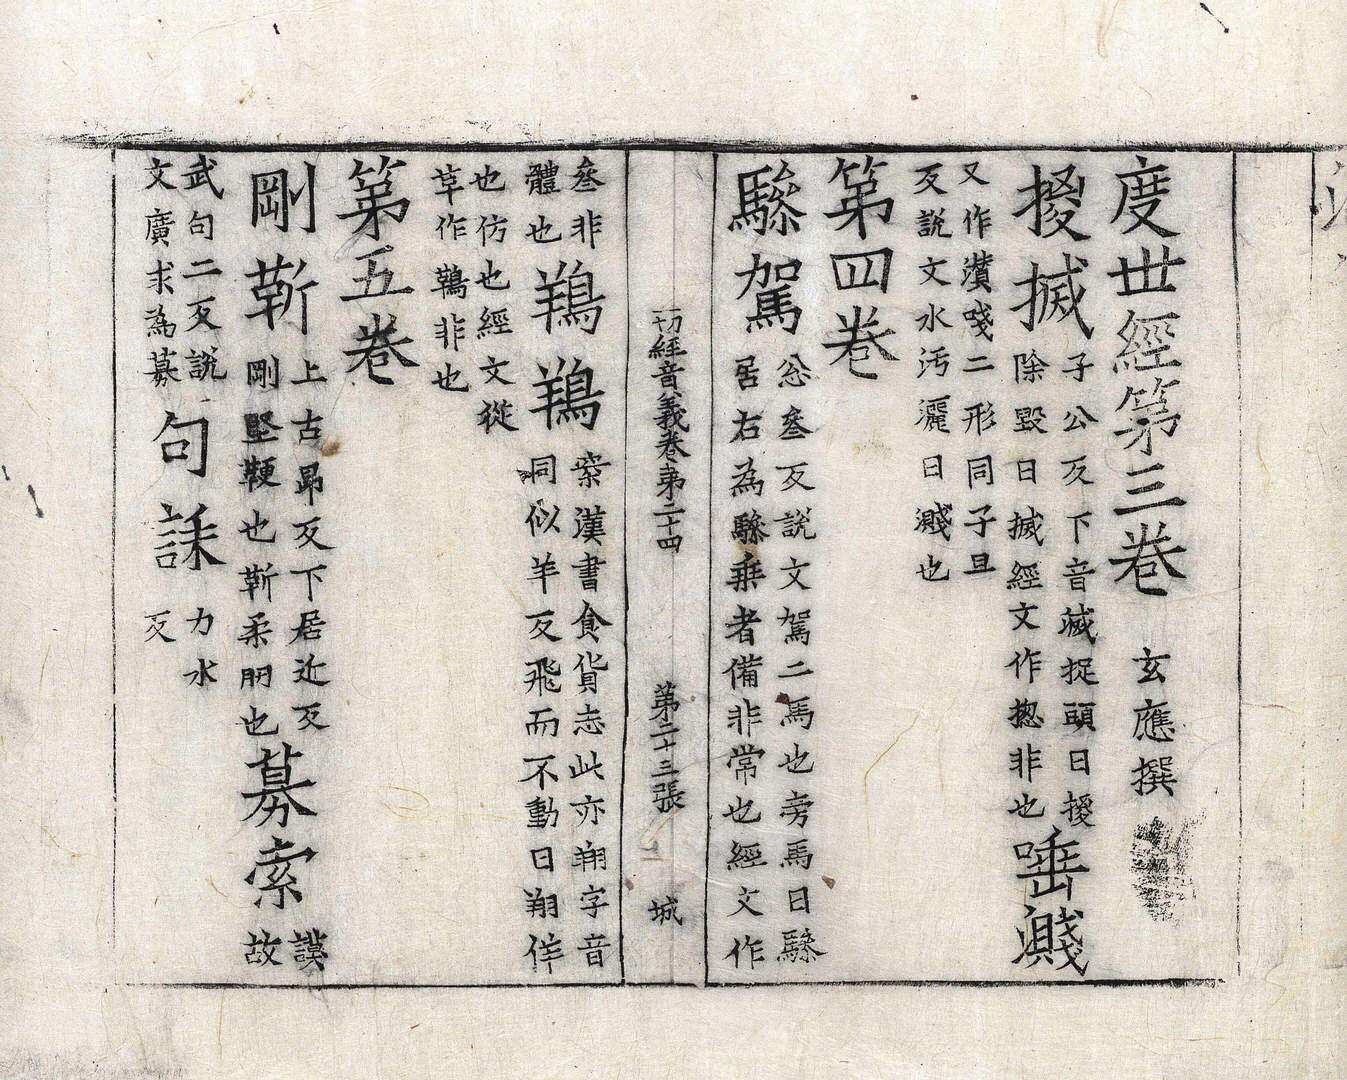 度世經第三卷 玄應撰
㨑搣 子公反下音滅捉頭曰㨑
除毀曰搣經文作揔非也 唾濺
又作灒㳻二形同子旦
反說文水污灑曰濺也
第四卷
驂駕 忩叄反說文駕二馬也旁馬曰驂
居右為驂乗者備非常也經文作
一切經音義卷苐二十四 第二十三張 城
叄非
體也 鶙鶙 案漢書食貨志此亦翔字音
同似羊反飛而不動曰翔佯
也仿也經文從
草作鶙非也
第五卷
剛靳 上古昂反下居近反
剛堅鞕也靳柔肕也 募索 謨
故
武句二反說
文廣求為募 句誄 力水
反